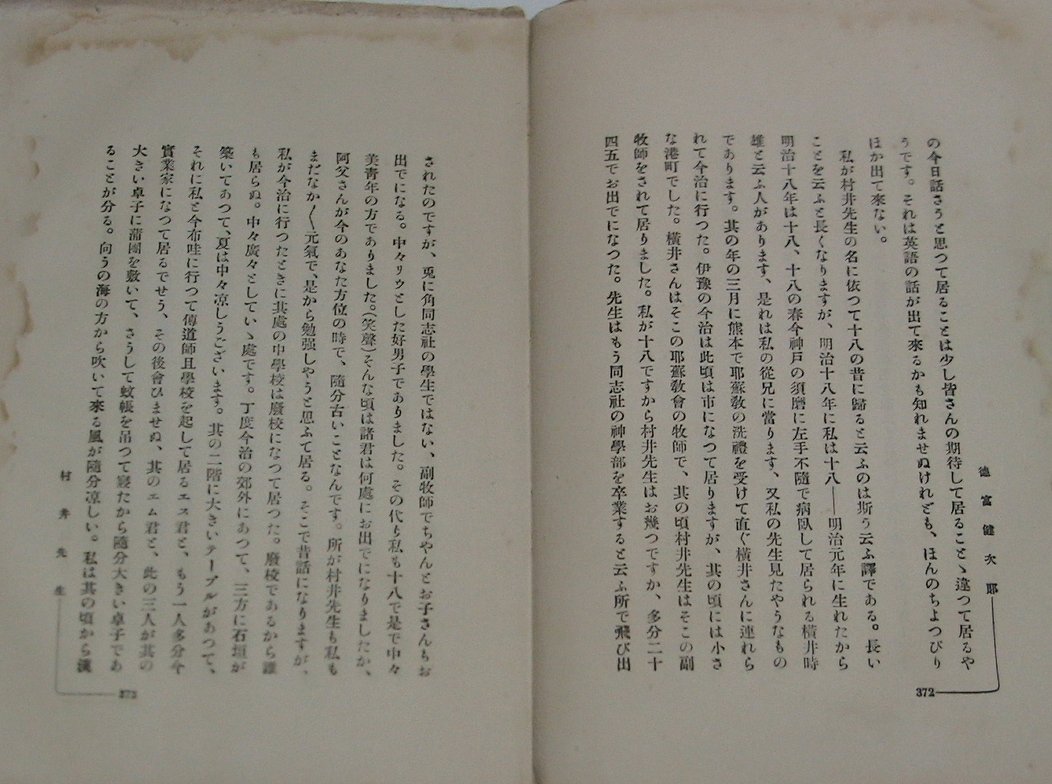 德富健次郎
の今日話さうと思つて居ることは少し皆さんの期待して居ることゝ違つて居るや
うです。それは英語の話が出て來るかも知れませぬけれども、ほんのちよつぴり
ほか出て來ない。
私が村井先生の名に依つて十八の昔に歸ると云ふのは斯う云ふ譯である。長い
ことを云ふと長くなりますが、明治十八年に私は十八――明治元年に生れたから
明治十八年は十八、十八の春今神戸の須磨に左手不隨で病臥して居られる橫井時
雄と云ふ人があります、是れは私の從兄に當ります、又私の先生見たやうなもの
であります。其の年の三月に熊本で耶蘇敎の洗禮を受けて直ぐ橫井さんに連れら
れて今治に行つた。伊豫の今治は此頃は市になつて居りますが、其の頃には小さ
な港町でした。橫井さんはそこの耶蘇敎會の牧師で、其の頃村井先生はそこの副
牧師をされて居りました。私が十八ですから村井先生はお幾つですか、多分二十
四五でお出でになつた。先生はもう同志社の神學部を卒業すると云ふ所で飛び出
372
されたのですが、兎に角同志社の學生ではない、副牧師でちやんとお子さんもお
出でになる。中々リウとした好男子でありました。その代り私も十八で是で中々
美靑年の方でありました。(笑聲)そんな頃は諸君は何處にお出でになりましたか、
阿父さんが今のあなた方位の時で、隨分古いことなんです。所が村井先生も私も
まだなか〱元氣で、是から勉强しやうと思ふて居る。そこで昔話になりますが、
私が今治に行つたときに其處の中學校は廢校になつて居つた。廢校であるから誰
も居らぬ。中々廣々としていゝ處です。丁度今治の郊外にあつて、三方に石垣が
築いてあつて、夏は中々凉しうございます。其の二階に大きいテーブルがあつて、
それに私と今布哇に行つて傳道師且學校を起して居るエス君と、もう一人多分今
實業家になつて居るでせう、その後會ひませぬ、其のエム君と、此の三人が其の
大きい卓子に蒲團を敷いて、さうして蚊帳を吊つて寢たから隨分大きい卓子であ
ることが分る。向うの海の方から吹いて來る風が隨分凉しい。私は其の頃から漢
村井先生
373